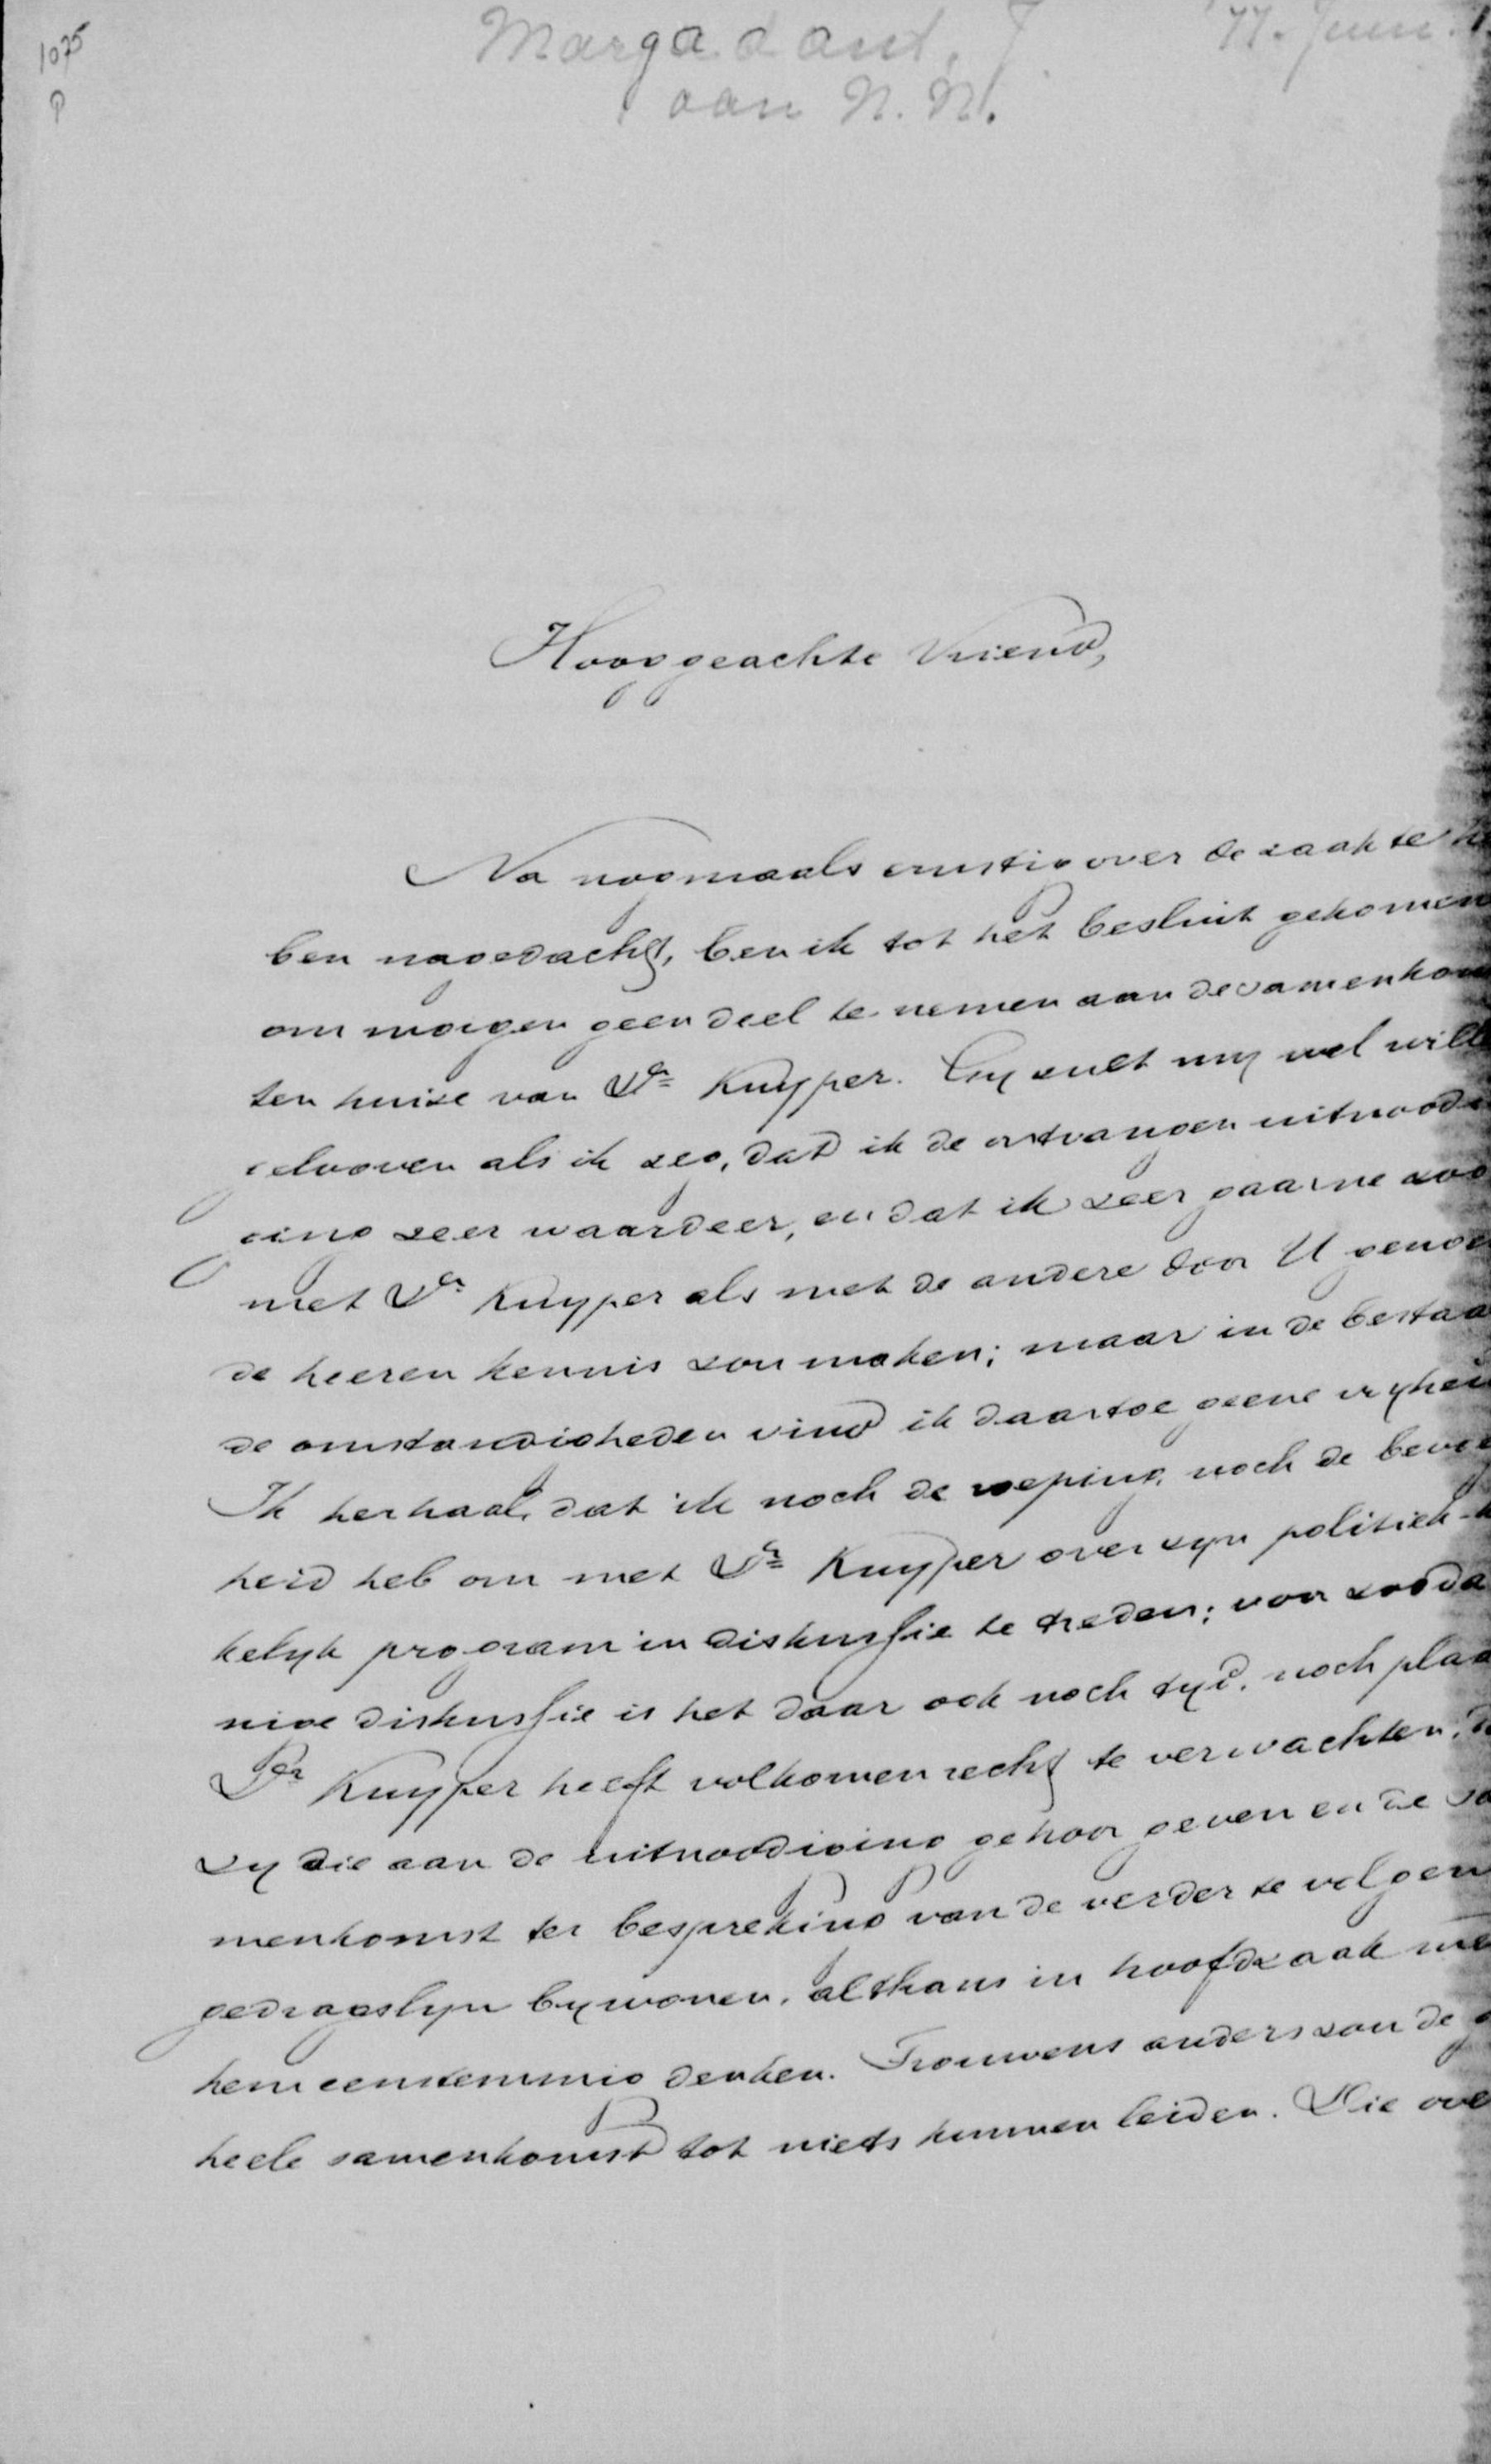 1075
P
Margadant, J.
aan N.N.
'77. Juni.
Hooggeachte Vriend,
Na nogmaals ernstig over de zaak te he
ben nagedacht, ben ik tot het besluit gekomen
om morgen geen deel te nemen aan de samenkom
ten huize van Dr Kuyper. Gy zult my wel will
gelooven als ik zeg, dat ik de ontvangen uitnoodi
ging zeer waardeer, en dat ik zeer gaarne zoo
met Dr Kuyper als met de andere door U genoe
de heeren kennis zou maken; maar in de bestaa
de omstandigheden vind ik daartoe geene vryhei
Ik herhaal, dat ik noch de roeping, noch de bevoe
heid heb om met Dr Kuyper over zyn politiek-k
kelyk program in diskussie te treden; voor zooda
nige diskussie is het daar ook noch tyd, noch plaa
Dr Kuyper heeft volkomen recht te verwachten, d
zy die aan de uitnoodiging gehoor geven en de sa
menkomst ter bespreking van de verder te volgen
gedragslyn bywonen, althans in hoofdzaak me
hem eenstemmig denken. Trouwens anders zou de g
heele samenkomst tot niets kunnen leiden. Die ove